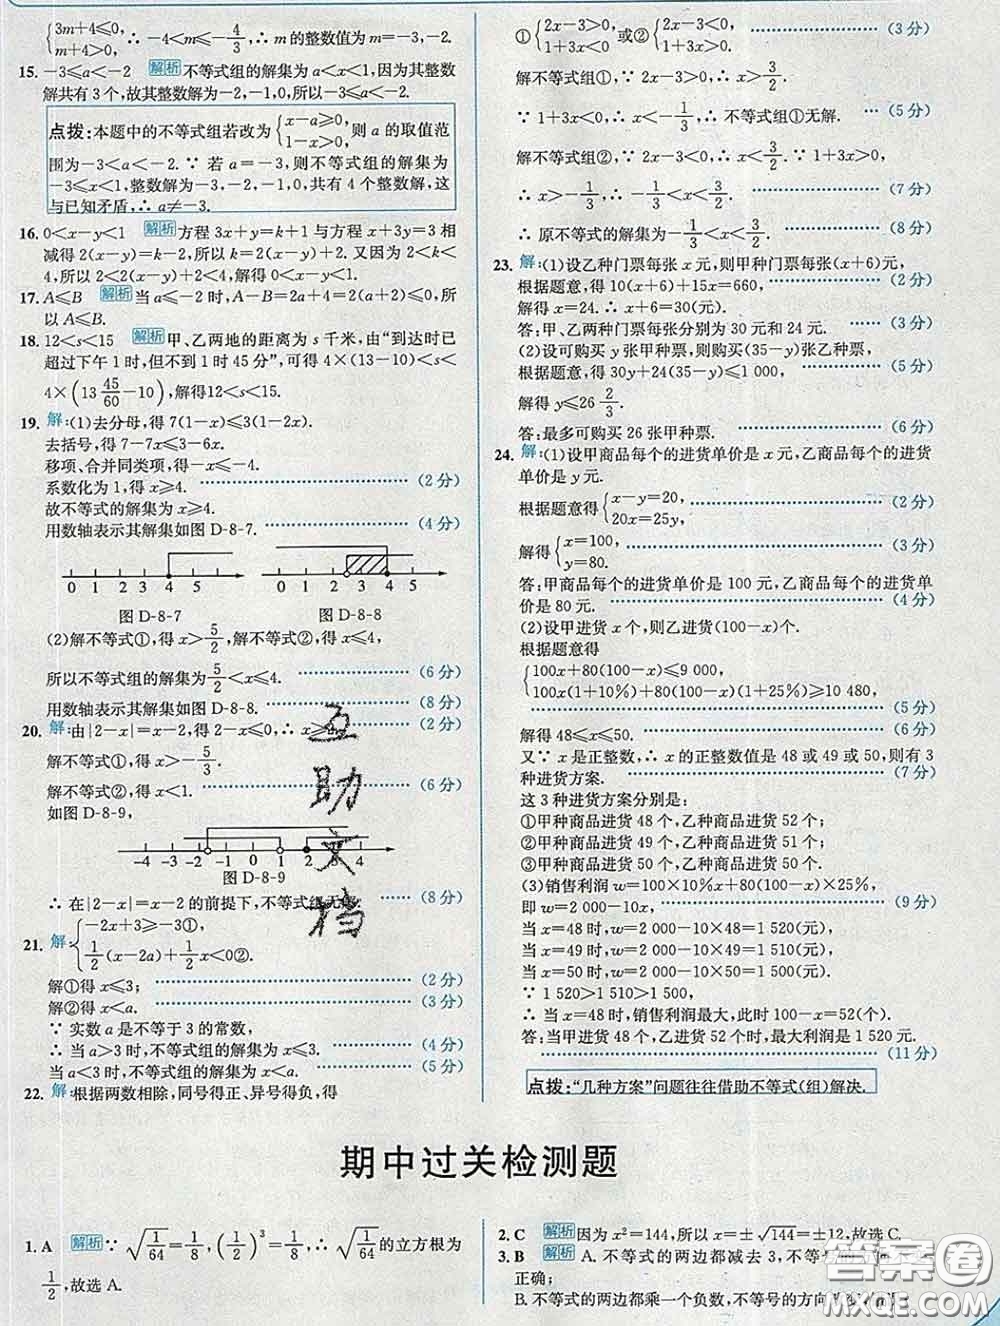 {3m+4≤0, m+4>0, ∴ -4<m≤-4/3, ∴ m 的整数值为 m=-3,-2.
15. -3≤a<-2 解析 不等式组的解集为 a<x<1,因为其整数
解共有 3 个,故其整数解为-2,-1,0,所以-3≤a<-2.
点拨:本题中的不等式组若改为{x-a≥0, 1-x>0, 则 a 的取值范
围为-3<a<-2. ∵ 若 a=-3,则不等式组的解集为
-3≤x<1,整数解为-3,-2,-1,0,共有 4 个整数解,这
与已知矛盾,∴ a≠-3.
16. 0<x-y<1 解析 方程 3x+y=k+1 与方程 x+3y=3 相
减得 2(x-y)=k-2,所以 k=2(x-y)+2. 又因为 2<k<
4,所以 2<2(x-y)+2<4,解得 0<x-y<1.
17. A≤B 解析 当 a≤-2 时,A-B=2a+4=2(a+2)≤0,所
以 A≤B.
18. 12<s<15 解析 甲、乙两地的距离为 s 千米,由“到达时已
超过下午 1 时,但不到 1 时 45 分”,可得 4×(13-10)<s<
4×(13 45/60-10),解得12<s<15.
19. 解:(1)去分母,得 7(1-x)≤3(1-2x).
去括号,得 7-7x≤3-6x.
移项、合并同类项,得-x≤-4.
系数化为 1,得 x≥4. (2 分)
故不等式的解集为 x≥4.
用数轴表示其解集如图 D-8-7. (4 分)
0 1 2 3 4 5 0 1 2 3 4 5
图 D-8-7 图 D-8-8
(2)解不等式①,得 x>5/2,解不等式②,得 x≤4,
所以不等式组的解集为 5/2<x≤4. (6 分)
用数轴表示其解集如图 D-8-8. (8 分)
20. 解:由|2-x|=x-2,得 2-x≤0,∴ x≥2. (2 分)
解不等式①,得 x>-5/3.
解不等式②,得 x<1. (6 分)
如图 D-8-9,
-4 -3 -2 -1 0 1 2 3 4
图 D-8-9
∴ 在|2-x|=x-2 的前提下,不等式组无解. (8 分)
21. 解:{-2x+3≥-3①, 1/2(x-2a)+1/2x<0②.
解①得 x≤3; (2 分)
解②得 x<a. (3 分)
∵ 实数 a 是不等于 3 的常数,
∴ 当 a>3 时,不等式组的解集为 x≤3. (4 分)
当 a<3 时,不等式组的解集为 x<a. (5 分)
22. 解:根据两数相除,同号得正、异号得负,得
①{2x-3>0, 1+3x<0 或②{2x-3<0, 1+3x>0. (3 分)
解不等式组①,∵ 2x-3>0,∴ x>3/2.
∵ 1+3x<0,∴ x<-1/3,∴ 不等式组①无解. (5 分)
解不等式组②,∵ 2x-3<0,∴ x<3/2. ∵ 1+3x>0,
∴ x>-1/3,∴ -1/3<x<3/2. (7 分)
∴ 原不等式的解集为-1/3<x<3/2. (8 分)
23. 解:(1)设乙种门票每张 x 元,则甲种门票每张(x+6)元,
根据题意,得 10(x+6)+15x=660,
解得 x=24.∴ x+6=30(元).
答:甲、乙两种门票每张分别为 30 元和 24 元. (3 分)
(2)设可购买 y 张甲种票,则购买(35-y)张乙种票,
根据题意,得 30y+24(35-y)≤1 000, (5 分)
解得 y≤26 2/3.
答:最多可购买 26 张甲种票. (6 分)
24. 解:(1)设甲商品每个的进货单价是 x 元,乙商品每个的进货
单价是 y 元.
根据题意得{x-y=20, 20x=25y, (2 分)
解得{x=100, y=80. (3 分)
答:甲商品每个的进货单价是 100 元,乙商品每个的进货单
价是 80 元. (4 分)
(2)设甲进货 x 个,则乙进货(100-x)个.
根据题意得
{100x+80(100-x)≤9 000, 100x(1+10%)+80(100-x)(1+25%)≥10 480,
(5 分)
解得 48≤x≤50. (6 分)
又∵ x 是正整数,∴ x 的正整数值是 48 或 49 或 50,则有 3
种进货方案. (7 分)
这 3 种进货方案分别是:
①甲种商品进货 48 个,乙种商品进货 52 个;
②甲种商品进货 49 个,乙种商品进货 51 个;
③甲种商品进货 50 个,乙种商品进货 50 个.
(3)销售利润 w=100x×10%+80(100-x)×25%,
即 w=2 000-10x, (9 分)
当 x=48 时,w=2 000-10×48=1 520(元),
当 x=49 时,w=2 000-10×49=1 510(元),
当 x=50 时,w=2 000-10×50=1 500(元).
∵ 1 520>1 510>1 500,
∴ 当 x=48 时,销售利润最大,此时 100-x=52(个).
答:当甲进货 48 个,乙进货 52 个时,最大利润是 1 520 元.
(11 分)
点拨:“几种方案”问题往往借助不等式(组)解决.
互助文档
期中过关检测题
1. A 解析 ∵ √(1/64)=1/8,(1/2)³=1/8,∴ √(1/64) 的立方根为
1/2,故选 A.
2. C 解析 因为 x²=144,所以 x=±√144=±12,故选 C.
3. B 解析 A. 不等式的两边都减去 3,不等号的
正确;
B. 不等式的两边都乘一个负数,不等号的方向
答案圈
MXQE.COM